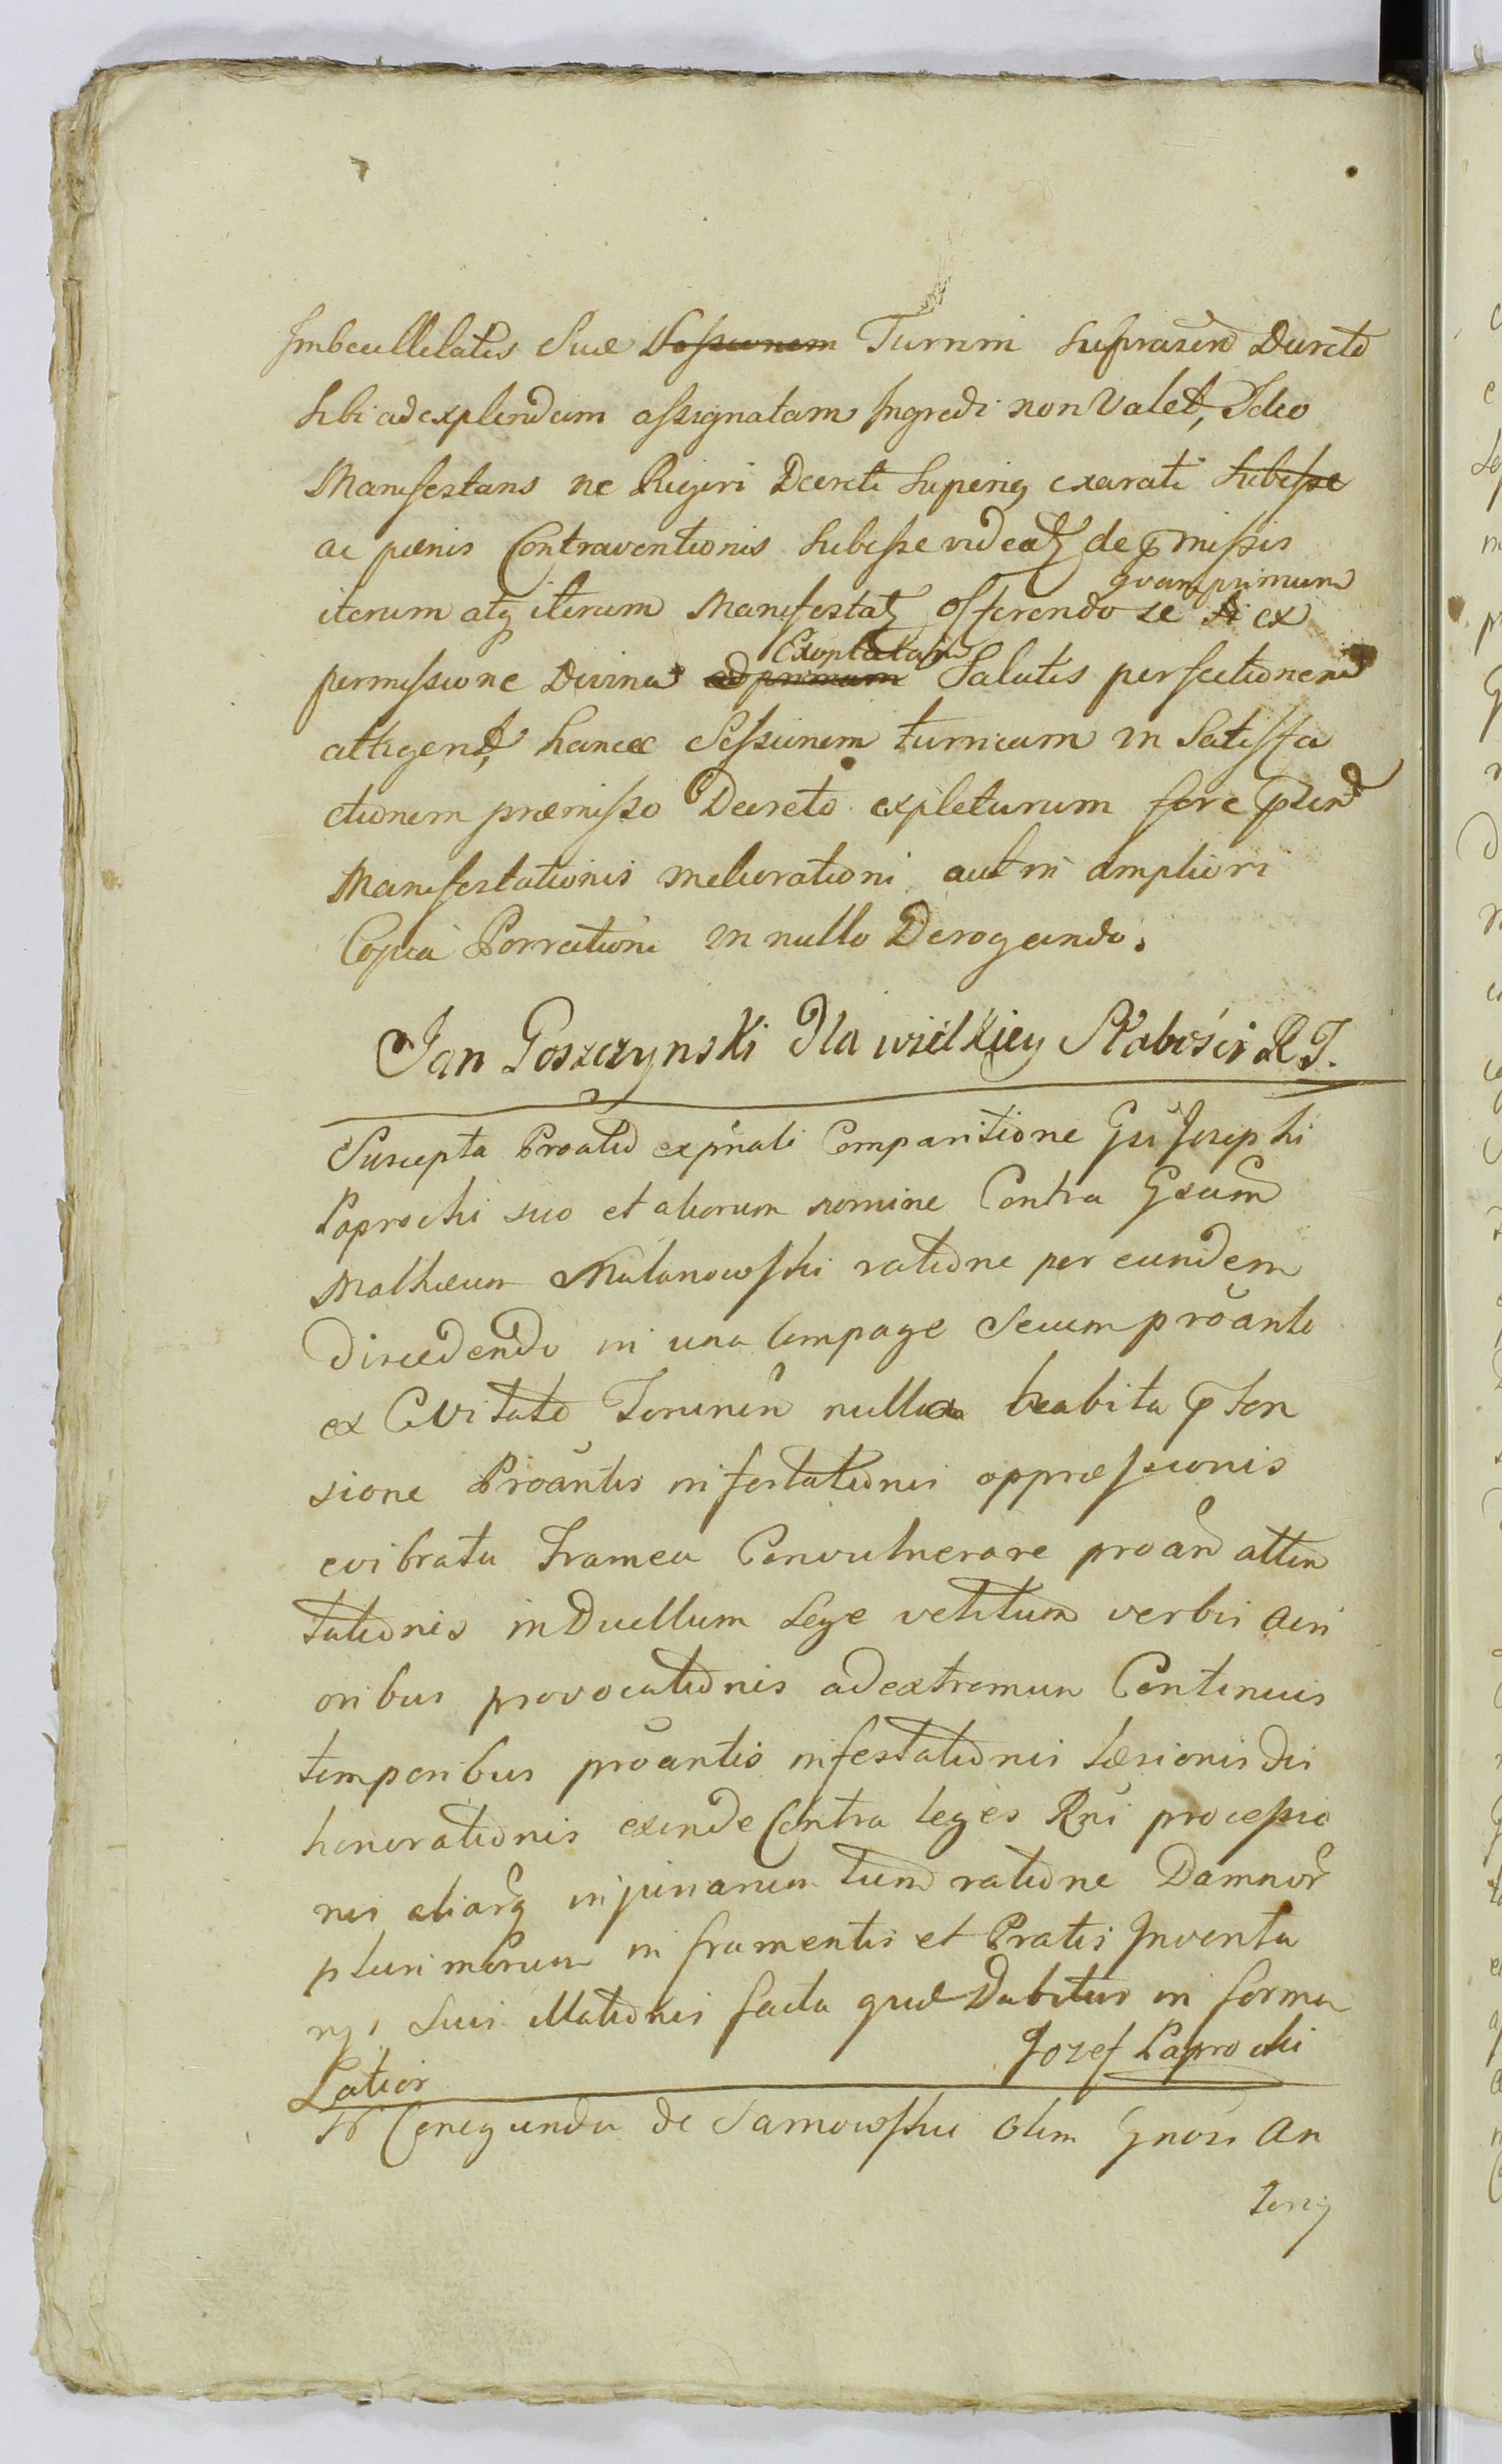 Imbecillitatis Suæ Sessionem Turrim suprascto Decreto
sibi ad explendum assignatam Ingredi non Valet, Ideo
Manifestans ne Rigori Decreti superiq exarati subesse
ac pœnis Contraventionis subesse videatz de pmissis
quamprimum
iterum atq iterum Manifestatz offerendo se ex
Exoptatam
permissione Divina ad primam Salutis perfectionem
attigerit, hancce Sessionem turrium in Satisfa
ctionem præmisso Decreto expleturum fore
Manifestationis meliorationi aut in ampliori
Copia Porrectioni in nullo Derogando.
Jan Goszczynski Dla wielkiey Słabości R T.
Suscepta Proatio expnali Comparitione Gsi Josephi
Paprocki suo et aliorum nomine Contra Gsum
Mathæum Milanowski ratione per eundem
discedendo in una Compage Secum proante
ex Civitate nulla habita pten
sione Proantis infestationis oppræssionis
evibrata Framea Convulnerare proan atten
tationis in Duellum Lege vetitum verbis acri
oribus provocationis ad extremum Continuis
temporibus proantis infestationis Læsionis dis
honorationis exinde Contra leges Rni processio
nis aliarq injuriarum tum ratione Damnor
plurimorum in frumentis et Pratis Inventa
rys suis illationis facta quæ Dabitur in forma
Latior
Jozef Paprocki
Cunegunda de Sarnowskie olim Gnosi An
tonij